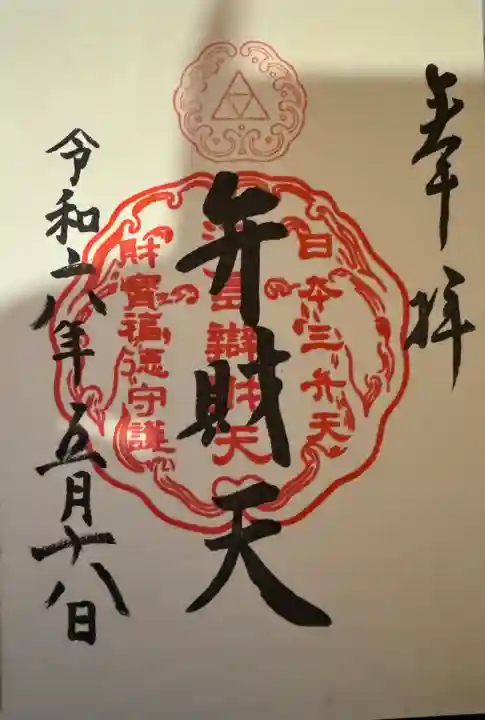 奉拝
日本三弁天
江島辯財天
弁財天
財寶福徳守護
令和六年五月十八日